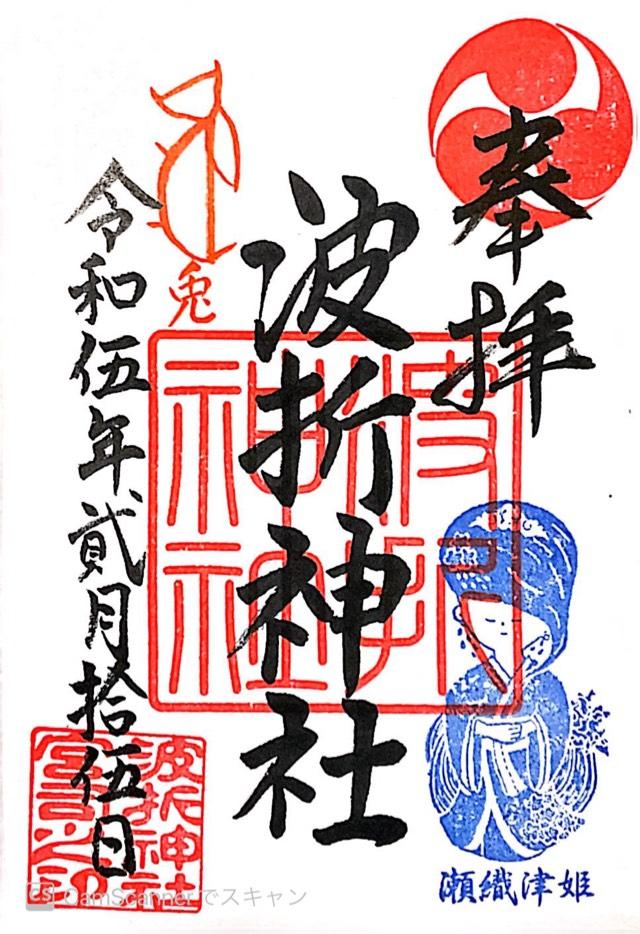 奉拝
波折神社
波折神社
瀬織津姫
兎
令和伍年貮月拾伍日
波折神社
宮司之印
CS CamScannerでスキャン